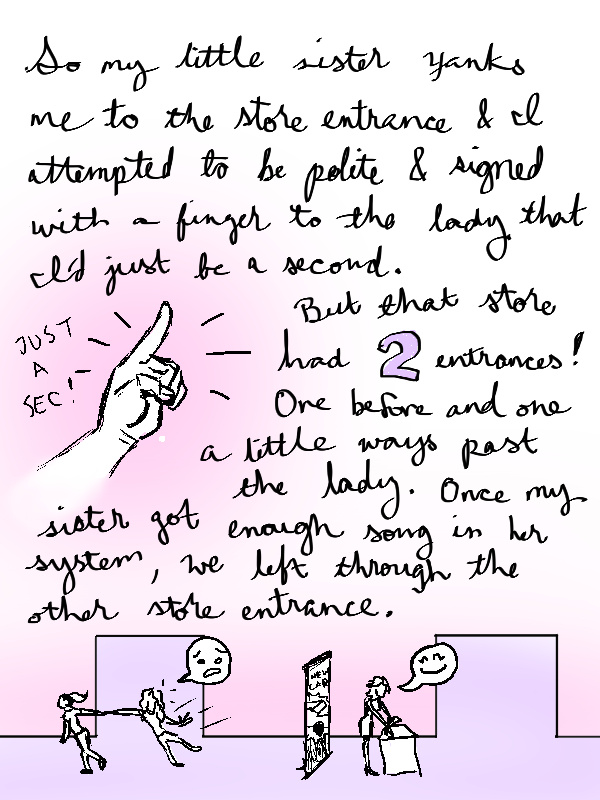 So my little sister yanks
me to the store entrance & I
attempted to be polite & signed
with a finger to the lady that
I'd just be a second.
JUST
A
SEC!
But that store
had 2 entrances!
One before and one
a little ways past
the lady. Once my
sister got enough song in her
system, we left through the
other store entrance.
NEW